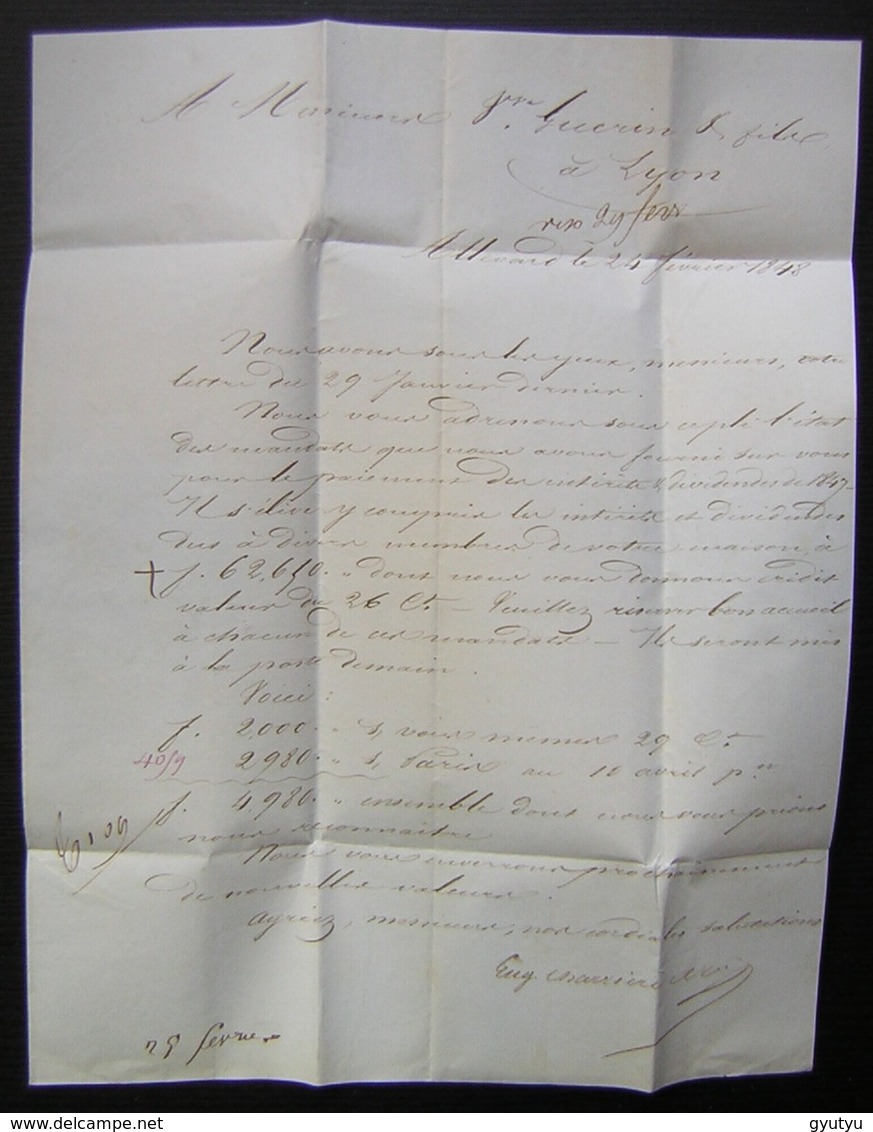 A Messieurs Vve Guerin & fils
à Lyon
rép 29 févr
Allevard le 24 février 1848
Nous avons sous les yeux, messieurs, votre
lettre du 29 Janvier dernier.
Nous vous adressons sous ce pli l'état
des mandats que nous avons fourni sur vous
pour le paiement des intérêts & dividendes de 1847
Il s'élève y compris les intérêts et dividendes
dus à divers membres de votre maison, à
f. 62,610. " dont nous vous donnons crédit
valeur du 26 Ct. - Veuillez réserver bon accueil
à chacun de ces mandats - Ils seront mis
à la poste demain.
Voici :
f. 2,000. " s, vous mêmes 29 Ct.
4059 2980. " s, Paris au 10 avril pn
f. 4,980. " ensemble dont nous vous prions
nous reconnaître
Nous vous enverrons prochainement
de nouvelles valeurs.
Agréez, messieurs, nos cordiales salutations
Eug. Charrière &Ce
29 février
delcampe.net
gyutyu